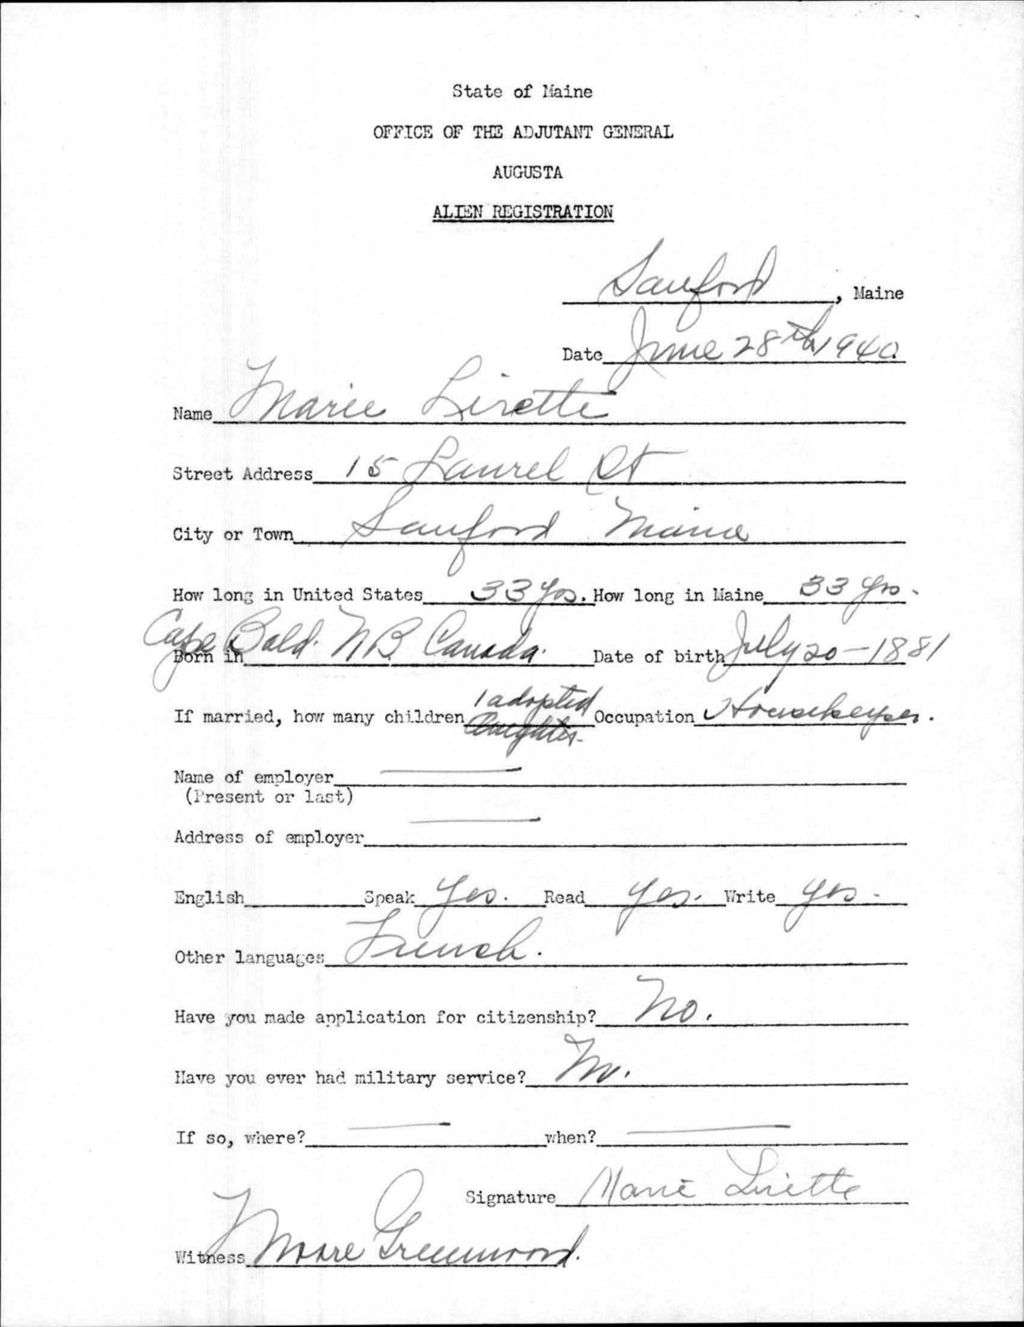 State of Maine
OFFICE OF THE ADJUTANT GENERAL
AUGUSTA
ALIEN REGISTRATION
Sanford, Maine
Date June 28th 1940
Name Marie Lirette
Street Address 15 Laurel St
City or Town Sanford Maine
How long in United States 33 Yrs. How long in Maine 33 Yrs.
Born in Cape Bald. NB Canada. Date of birth July 20 - 1881
If married, how many children 1 adopted daughter. Occupation Housekeeper.
Name of employer
(Present or last)
Address of employer
English Speak Yes. Read Yes. Write Yes -
Other languages French.
Have you made application for citizenship? No.
Have you ever had military service? No.
If so, where? when?
Signature Marie Lirette
Witness Moore Greenwood.